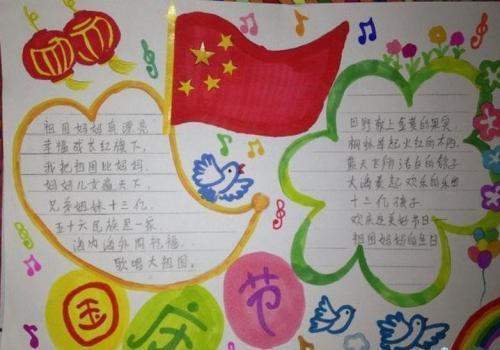 祖国妈妈真漂亮
幸福成长红旗下,
我把祖国比妈妈,
妈妈儿女遍天下,
兄弟姐妹十三亿,
五十六民族是一家,
海内海外同祝福,
歌唱大祖国。
田野献上金黄的果实,
枫林举起火红的
蓝天飞翔洁白的鸽子
大海奏起欢乐的乐曲
十三亿孩子
欢乐是美好节日——
祖国妈妈的生日
国庆节